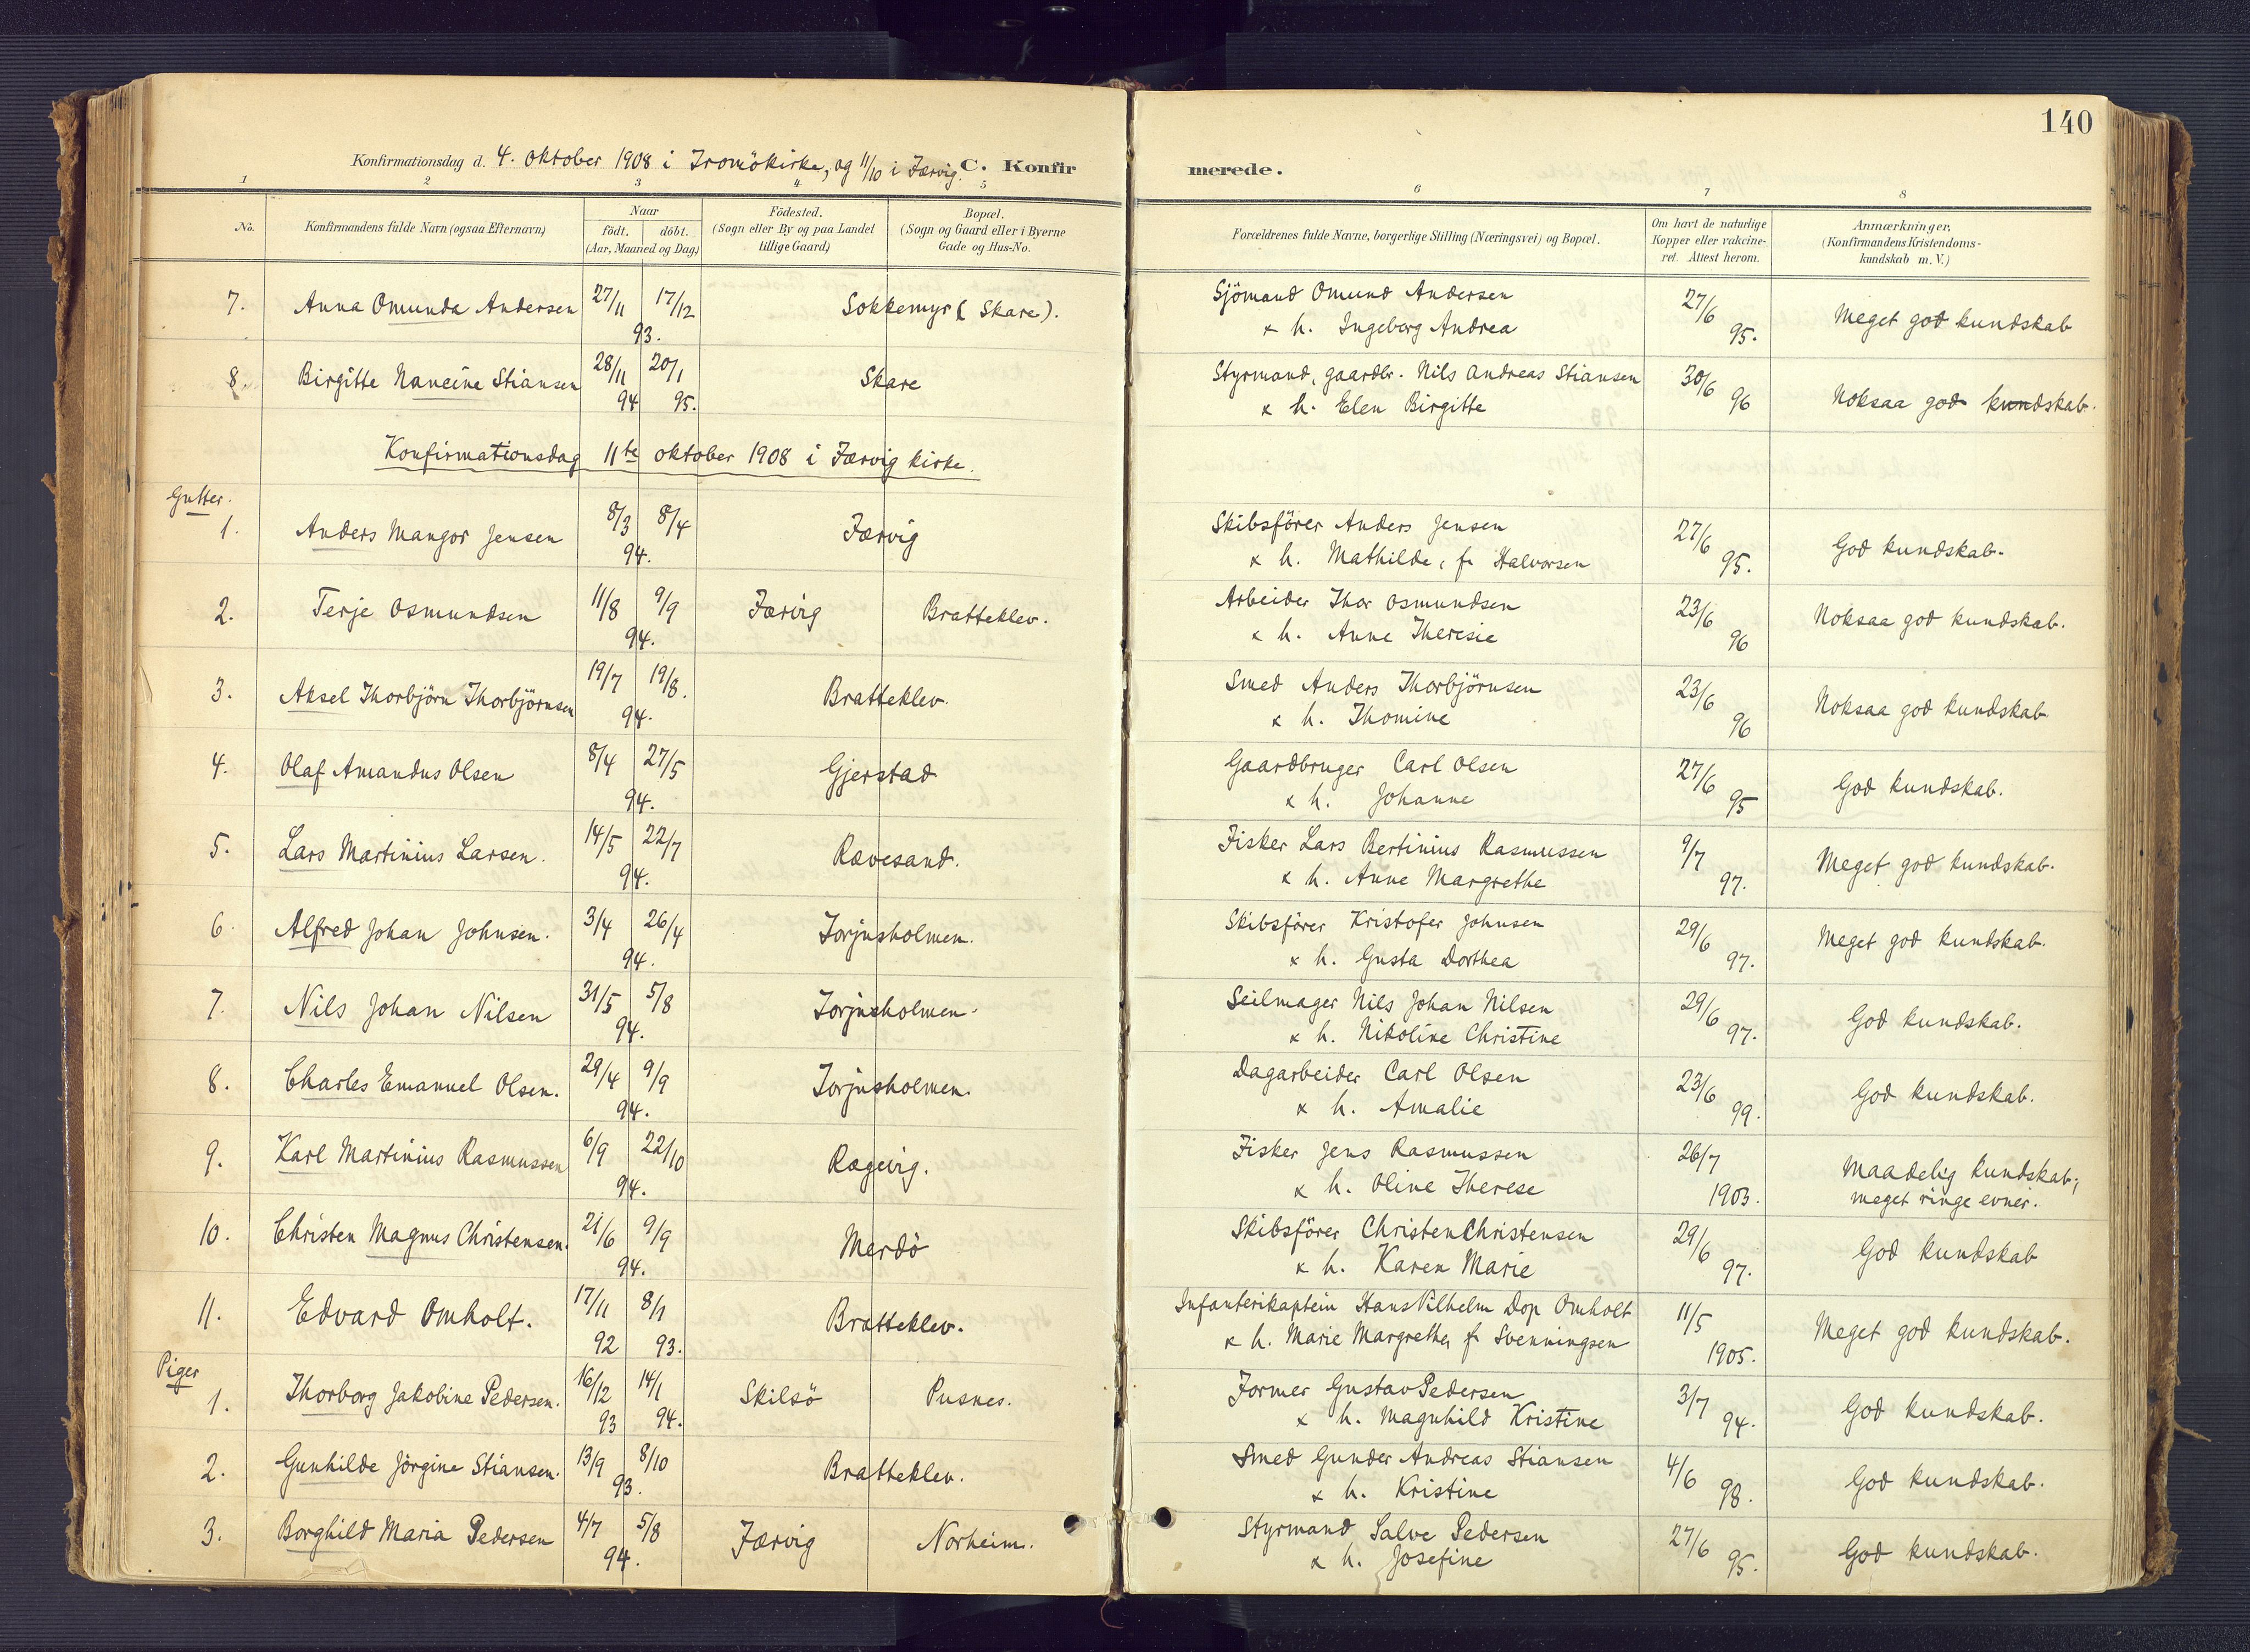 140
Konfirmationsdag d. 4. oktober 1908 i Tromökirke, og 11/10 i Færvig. C. Konfirmerede.
1 2 3 4 5 6 7 8
No. Konfirmandens fulde Navn (ogsaa Efternavn) Naar födt. döbt. (Aar, Maaned og Dag) Födested. (Sogn eller By og paa Landet tillige Gaard) Bopæl. (Sogn og Gaard eller i Byerne Gade og Hus-No. Forældrenes fulde Navne, borgerlige Stilling (Næringsvei) og Bopæl. Om havt de naturlige Kopper eller vakcineret. Attest herom. Anmærkninger. (Konfirmandens Kristendomskundskab m. V.)
7. Anna Omunda Andersen 27/11 17/12 93. Sokkemyr (Skare). Sjömand Omund Andersen
& h. Ingeborg Andrea 27/6 95. Meget god kundskab
8. Birgitte Nancine Stiansen 28/11 94 20/1 95. Skare Styrmand, gaardbr. Nils Andreas Stiansen
& h. Elen Birgitte 30/6 96 Noksaa god kundskab.
Konfirmationsdag 11te oktober 1908 i Færvig kirke.
Gutter.
1. Anders Mangor Jensen 8/3 8/4 94. Færvig Skibsförer Anders Jensen
& h. Mathilde, f. Halvorsen 27/6 95. God kundskab.
2. Terje Osmundsen 11/8 9/9 94. Færvig Bratteklev. Arbeider Thor Osmundsen
& h. Anne Theresie 23/6 96 Noksaa god kundskab.
3. Aksel Thorbjörn Thorbjörnsen 19/7 19/8. 94. Bratteklev. Smed Anders Thorbjörnsen
& h. Thomine 23/6 96 Noksaa god kundskab
4. Olaf Amandus Olsen 8/4 27/5 94. Gjerstad Gaardbruger Carl Olsen
& h. Johanne 27/6 95 God kundskab.
5. Lars Martinius Larsen. 14/5 22/7 94. Rævesand. Fisker Lars Bertinius Rasmussen
& h. Anne Margrethe 9/7 97. Meget god kundskab.
6. Alfred Johan Johnsen. 3/4 26/4 94. Torjusholmen. Skibsförer Kristofer Johnsen
& h. Gusta Dorthea 29/6 97. Meget god kundskab.
7. Nils Johan Nilsen 31/5 5/8 94. Torjusholmen. Seilmager Nils Johan Nilsen
& h. Nikoline Christine 29/6 97. God kundskab.
8. Charles Emanuel Olsen. 29/4 9/9 94. Torjusholmen. Dagarbeider Carl Olsen
& h. Amalie 23/6 99. God kundskab.
9. Karl Martinius Rasmussen 6/9 22/10 94. Rægevig. Fisker Jens Rasmussen
& h. Oline Therese 26/7 1903. Maadelig kundskab;
meget ringe evner.
10. Christen Magnus Christensen. 21/6 9/9 94. Merdö Skibsförer Christen Christensen
& h. Karen Marie 29/6 97. God kundskab
11. Edvard Omholt. 17/11 92 8/1 93. Bratteklev. Infanterikaptein Hans Vilhelm Dop Omholt
& h. Marie Margrethe, f. Svenningsen 11/5 1905. Meget god kundskab.
Piger
1. Thorborg Jakobine Pedersen. 16/12 93 14/1 94. Skilsö Pusnes. Former Gustav Pedersen
& h. Magnhild Kristine 3/7 94. God kundskab.
2. Gunhilde Jörgine Stiansen. 13/9 8/10 93. Bratteklev. Smed Gunder Andreas Stiansen
& h. Kristine 4/6 98. God kundskab.
3. Borghild Maria Pedersen 4/7 5/8 94. Færvig Norheim. Styrmand Salve Pedersen
& h. Josefine 27/6 95. God kundskab.